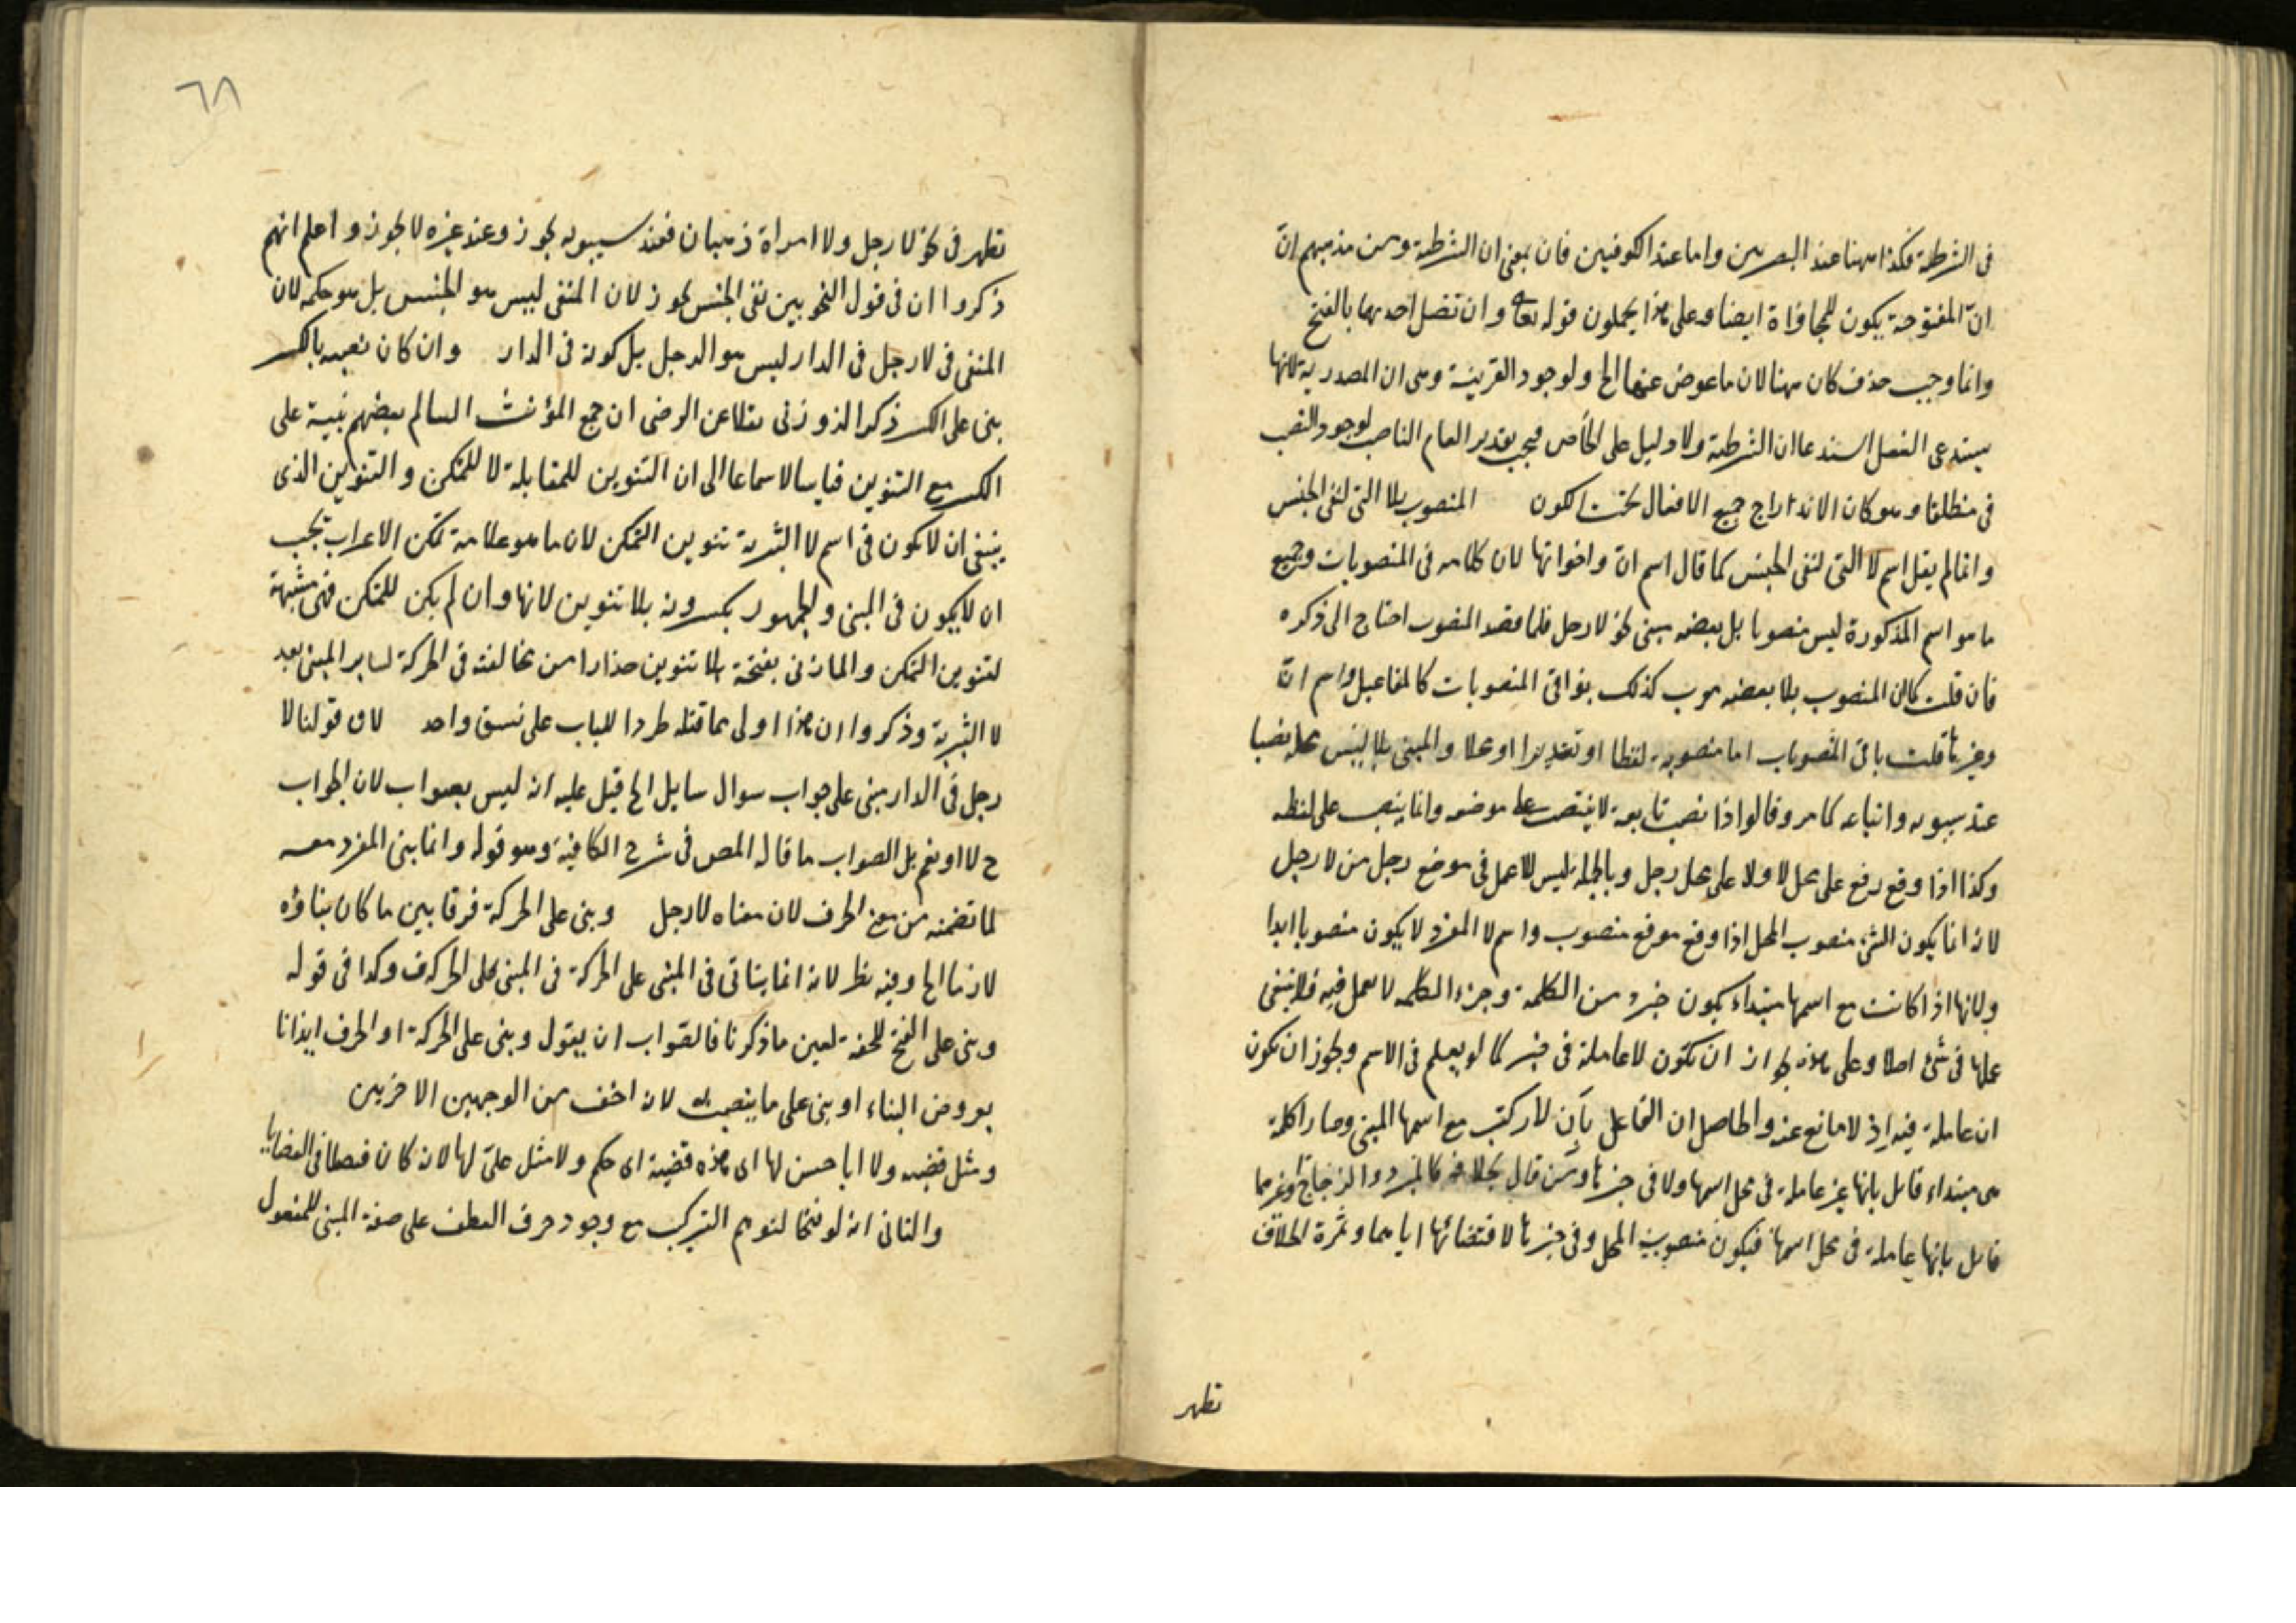 فى الشرطية فكذا ههنا عند البصريين واما عند الكوفيين فان بمعنى ان الشرطية ومن مذهبهم انّ
انّ المفتوحة يكون للمجازاة ايضا وعلى هذا يحملون قوله تعا وان تضل احديهما بالفتح
وانما وجب حذف كان ههنا لان ما عوض عنها الخ ولوجود القرينة وهى ان المصدرية لانها
يستدعى الفعل استدعا ان الشرطية ولا دليل على الخاص فيجب تقدير العام الناصب لوجود النصب
فى منطلقا وهو كان الاندراج جميع الافعال تحت الكون المنصوب بلا التى لنفى الجنس
وانما لم يقل اسم لا التى لنفى الجنس كما قال اسم ان واخواتها لان كلامه فى المنصوبات وجميع
ما هو اسم المذكورة ليس منصوبا بل بعضه مبنى نحو لا رجل فلما قصد المنصوب احتاج الى ذكره
فان قلت كان المنصوب بلا بعضه معرب كذلك بواقى المنصوبات كالمفاعيل واسم انّ
وغيرها قلت باقى المنصوبات اما منصوبة لفظا او تقديرا او محلا والمبنى بلا ليس محله نصبا
عند سيبويه واتباعه كما مر وقالوا اذا نصب تابعه لا ينتصب على موضعه وانما ينصب على لفظه
وكذا اذا وقع رفع على محل لا ولا على محل رجل وبالجملة ليس للا عمل فى موضع رجل من لا رجل
لانه انما يكون الشئ منصوب المحل اذا وقع موقع منصوب واسم لا المفرد لا يكون منصوبا ابدا
ولانها اذا كانت مع اسمها مبتداء يكون جزء من الكلمة وجزء الكلمة لا يعمل فيه فلا ينبغى
عملها فى شئ اصلا وعلى هذا جواز ان تكون لا عاملة فى خبر كما لو يعلم فى الاسم ويجوز ان تكون
ان عاملة فيه اذ لا مانع عنه والحاصل ان القائل بأن لا ركب مع اسمها المبنى وصارا كلمة
هى مبتداء قائل بانها غير عاملة فى محل اسمها ولا فى خبرها ومن قال بخلافه كالمبرد والزجاج وغيرهما
قائل بانها عاملة فى محل اسمها فيكون منصوب المحل وفى خبرها لاقتضائها اياهما وثمرة الخلاف
تظهر
٦٨
تظهر فى نحو لا رجل ولا امراة ذهبان فعند سيبويه يجوز وعند غيره لا يجوز واعلم انهم
ذكروا ان فى قول النحويين نفى الجنس تجوز لان المنفى ليس هو الجنس بل هو حكمه لان
المنفى فى لا رجل فى الدار ليس هو الرجل بل كونه فى الدار وان كان نصبه بالكسر
بنى على الكسر ذكر الزوزنى نقلا عن الرضى ان جمع المؤنث السالم بعضهم يبنيه على
الكسر مع التنوين قياسا لا سماعا الى ان التنوين للمقابلة لا للتمكن والتنوين الذى
ينبغى ان لا يكون فى اسم لا التبرية تنوين التمكن لان ما هو علامة تمكن الاعراب يجب
ان لا يكون فى المبنى والجمهور يكسرونه بلا تنوين لانها وان لم يكن للتمكن فهى مشبهة
لتنوين التمكن والمازنى بفتحة بلا تنوين حذارا من مخالفته فى الحركة لساير المبنى بعد
لا التبرية وذكروا ان هذا اولى مما قبله طردا للباب على نسق واحد لان قولنا لا
رجل فى الدار مبنى على جواب سوال سايل الخ قيل عليه انه ليس بصواب لان الجواب
ح لا او نعم بل الصواب ما قاله المص فى شرح الكافية وهو قوله وانما بنى المفرد معه
لما تضمنه من معنى الحرف لان معناه لا رجل وبنى على الحركة فرقا بين ما كان بناؤه
لازما الخ وفيه نظر لانه انما يتاتى فى المبنى على الحركة فى المبنى على الحرف وكذا فى قوله
وبنى على الفتح للخفة لعين ما ذكرنا فالصواب ان يقول وبنى على الحركة او الحرف ايذانا
بعروض البناء او بنى على ما ينصب به لانه اخف من الوجهين الاخرين
ومثل قضية ولا ابا حسن لها اى هذه قضية اى حكم ولا مثل علىّ لها لانه كان فيصلا فى القضايا
والثانى انه لو فتحا لتوهم التركيب مع وجود حرف العطف على صفة المبنى للمفعول